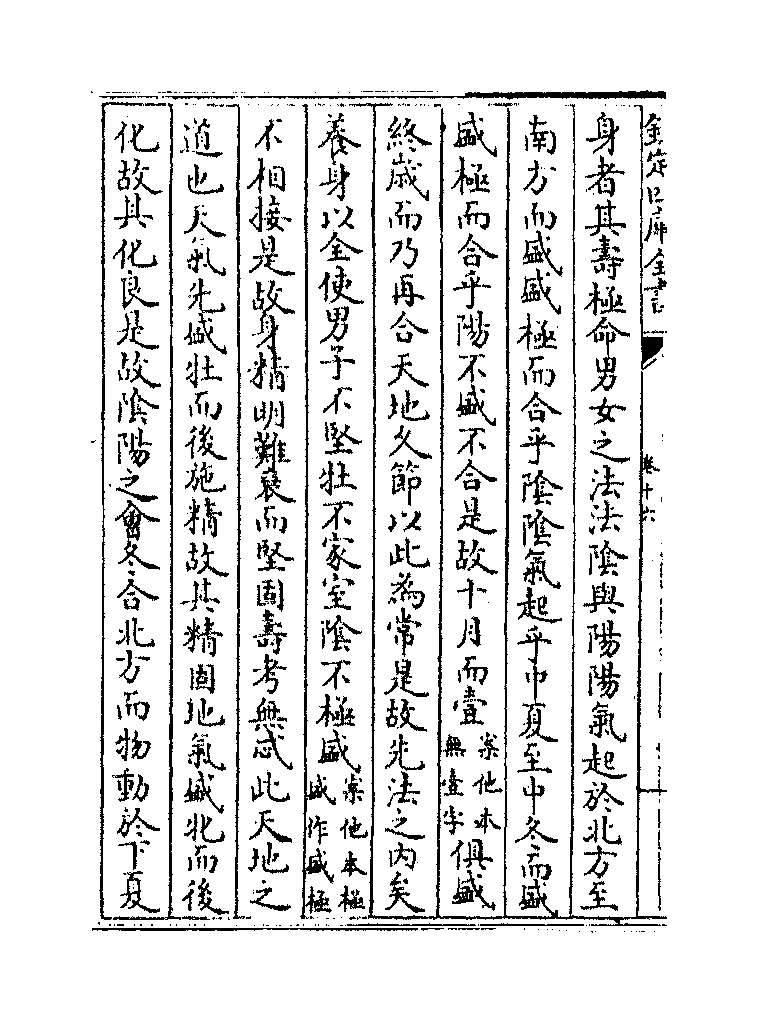 欽定四庫全書
卷十六
身者其壽極命男女之法法陰與陽陽氣起於北方至
南方而盛盛極而合乎陰陰氣起乎中夏至中冬而盛
盛極而合乎陽不盛不合是故十月而壹案他本無壹字俱盛
終歲而乃再合天地久節以此為常是故先法之内矣
養身以全使男子不堅牡不家室陰不極盛案他本極盛作盛極
不相接是故身精明難衰而堅固壽考無忒此天地之
道也天氣先盛牡而後施精故其精固地氣盛牝而後
化故其化良是故陰陽之會冬合北方而物動於下夏